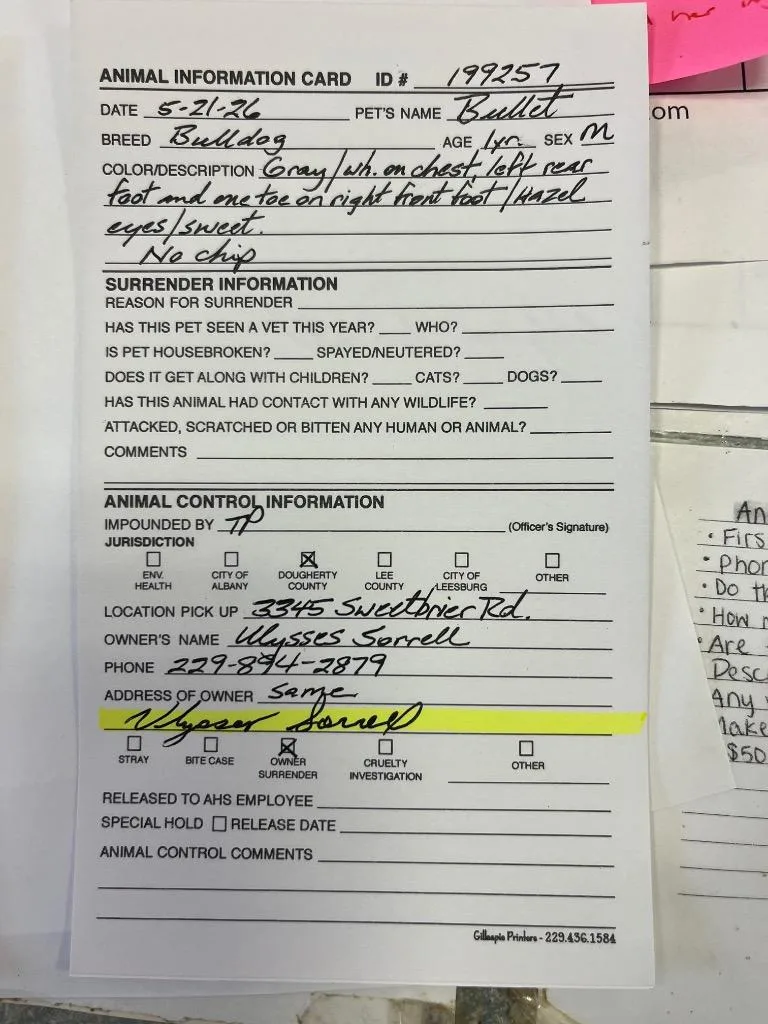 ANIMAL INFORMATION CARD ID # 199257
DATE 5-21-26 PET'S NAME Bullet
BREED Bulldog AGE 1yr. SEX M
COLOR/DESCRIPTION Gray/wh. on chest, left rear
foot and one toe on right front foot/Hazel
eyes/sweet.
No chip
SURRENDER INFORMATION
REASON FOR SURRENDER
HAS THIS PET SEEN A VET THIS YEAR? WHO?
IS PET HOUSEBROKEN? SPAYED/NEUTERED?
DOES IT GET ALONG WITH CHILDREN? CATS? DOGS?
HAS THIS ANIMAL HAD CONTACT WITH ANY WILDLIFE?
ATTACKED, SCRATCHED OR BITTEN ANY HUMAN OR ANIMAL?
COMMENTS
ANIMAL CONTROL INFORMATION
IMPOUNDED BY TP (Officer's Signature)
JURISDICTION
ENV. HEALTH
CITY OF ALBANY
DOUGHERTY COUNTY
LEE COUNTY
CITY OF LEESBURG
OTHER
LOCATION PICK UP 3345 Sweetbrier Rd.
OWNER'S NAME Ulysses Sorrell
PHONE 229-894-2879
ADDRESS OF OWNER same
Ulysses Sorrell
STRAY
BITE CASE
OWNER SURRENDER
CRUELTY INVESTIGATION
OTHER
RELEASED TO AHS EMPLOYEE
SPECIAL HOLD RELEASE DATE
ANIMAL CONTROL COMMENTS
Gillespie Printers - 229.436.1584
om
An
• Firs
• Phon
• Do th
• How
• Are
Desc
Any
Make
$50